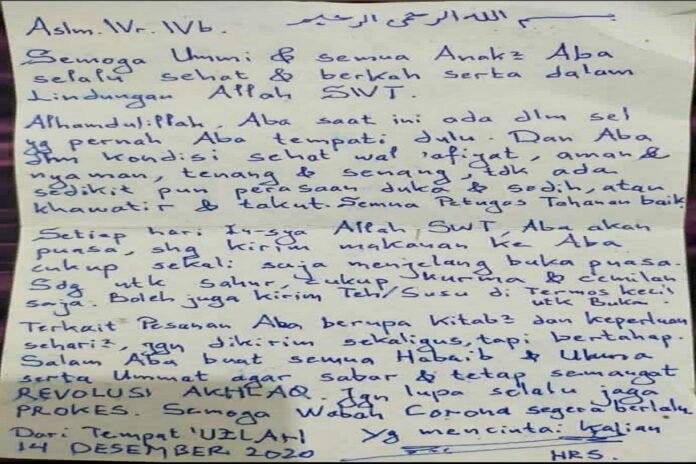 Aslm. Wr. Wb. بسم الله الرحمن الرحيم
Semoga Ummi & semua Anak2 Aba
selalu sehat & berkah serta dalam
Lindungan Allah SWT.
Alhamdulillah, Aba saat ini ada dlm sel
yg pernah Aba tempati dulu. Dan Aba
dlm kondisi sehat wal 'afiyat, aman &
nyaman, tenang & senang, tdk ada
sedikit pun perasaan duka & sedih, atau
khawatir & takut. Semua Petugas Tahanan baik
Setiap hari In-sya Allah SWT, Aba akan
puasa, shg kirim makanan ke Aba
cukup sekali saja menjelang buka puasa.
Sdg utk sahur, cukup kurma & cemilan
saja. Boleh juga kirim Teh/Susu di Termos kecil
utk Buka.
Terkait Pesanan Aba berupa Kitab2 dan keperluan
sehari2, jgn dikirim sekaligus, tapi bertahap.
Salam Aba buat semua Habaib & Ulama
serta Ummat agar sabar & tetap semangat
REVOLUSI AKHLAQ. Jgn lupa selalu jaga
PROKES. Semoga Wabah Corona segera berlalu.
Dari Tempat 'UZLAH
14 DESEMBER 2020
Yg mencintai kalian
HRS.